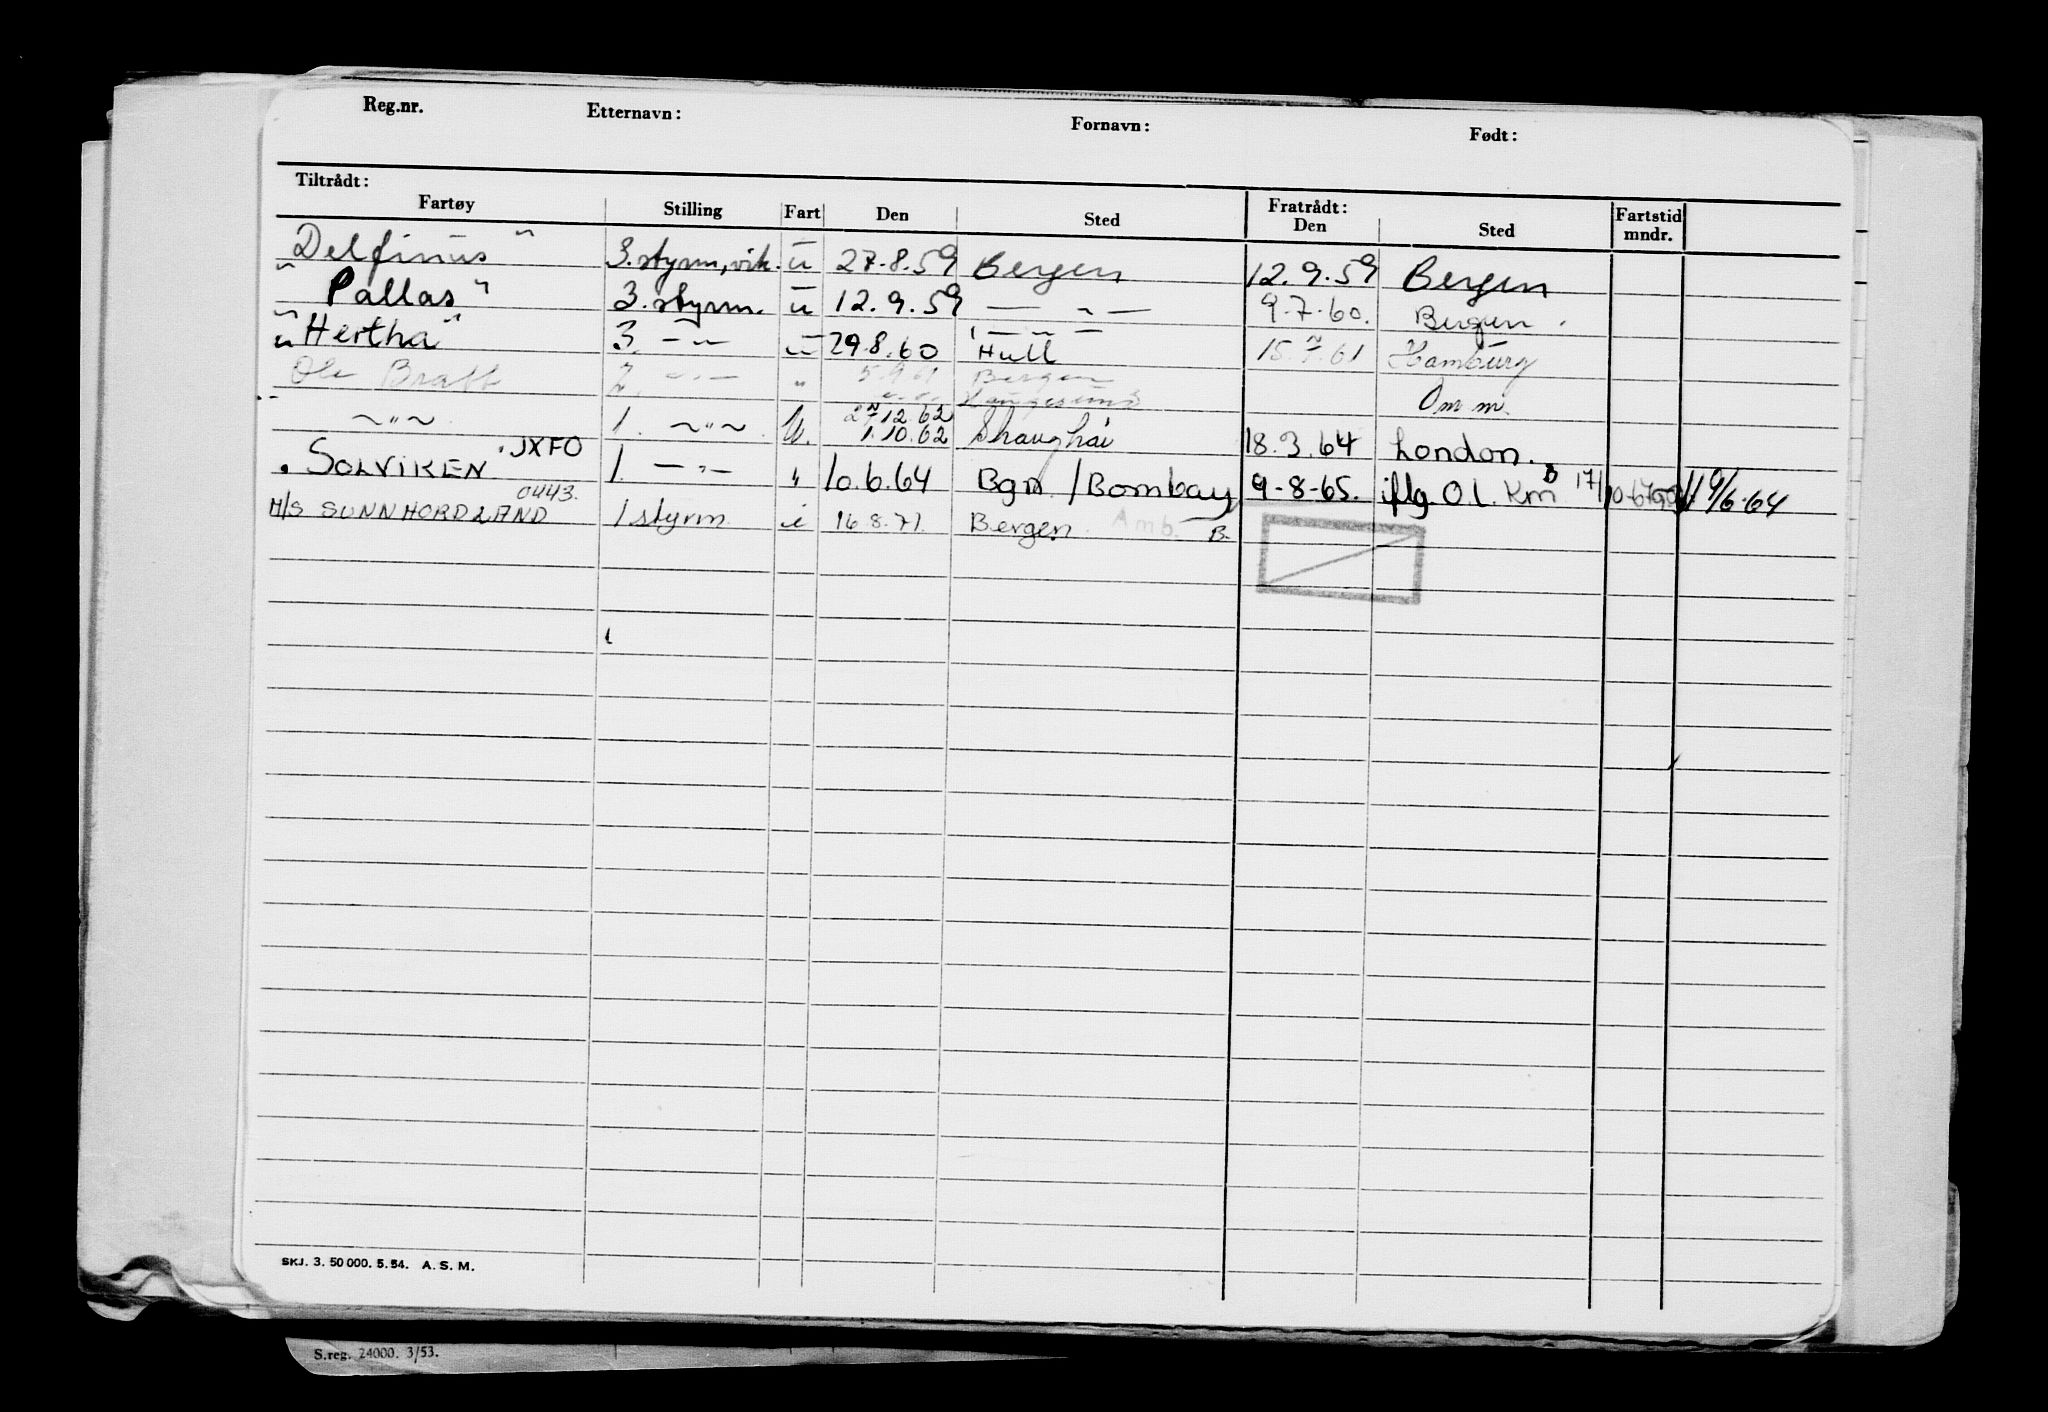 Reg.nr. Etternavn: Fornavn: Født:
Tiltrådt: Fratrådt:
Fartøy Stilling Fart Den Sted Den Sted Fartstid mndr.
Delfinus" 3. styrm, vik. u 27.8.59 Bergen 12.9.59 Bergen
" Pallas" 3. styrm. u 12.9.59 — " — 9.7.60. Bergen.
"Hertha" 3. — " — u 29.8.60 Hull 15.7.61 Hamburg
Ole Bratt 2. — " — " 5.9.61 Bergen
Haugesund Omm.
2.12.62
~ " ~ 1. ~ " ~ U. 1.10.62 Shanghai 18.3.64 London.
"JXFO
" SOLVIKEN 1. — " — " 10.6.64 Bgn / Bombay 9-8-65. iflg. O.l. Km 9/6-64
0443.
M/S SUNNHORDLAND 1 styrm. i 16.8.71. Bergen. Amb. B.
SKJ. 3. 50 000. 5. 54. A. S. M.
S.reg. 24000. 3/53.